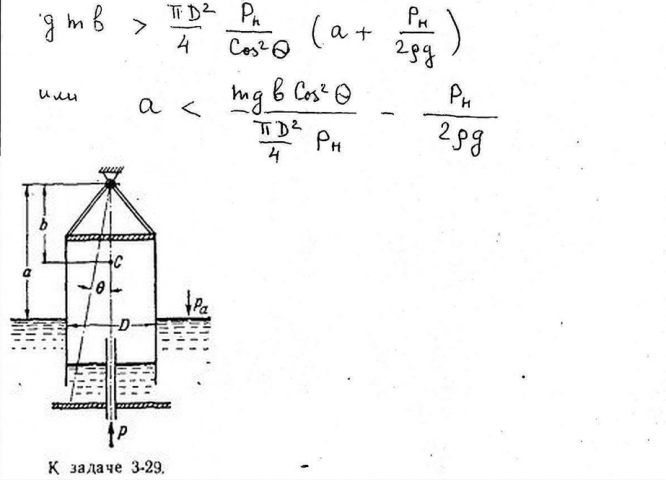 g m b > πD²/4 Pн/Cos²Θ (a + Pн/2ρg)
или a < mg b Cos²Θ / πD²/4 Pн − Pн/2ρg
a
b
C
θ
D
Pa
P
К задаче 3-29.